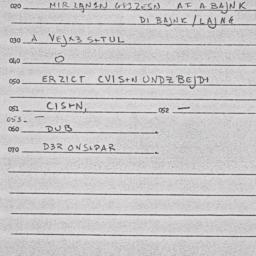 020 MIRLANSN GVIZESN AT A BAJNK
DI BAJNK / LAJNG
030 A VEJX3 S+TUL
040 O
050 ERZICT CVIS+N UNDZBEJD+
051 CIS+N, 052 —
053. —
060 DUB
070 D3R ONSLDAR